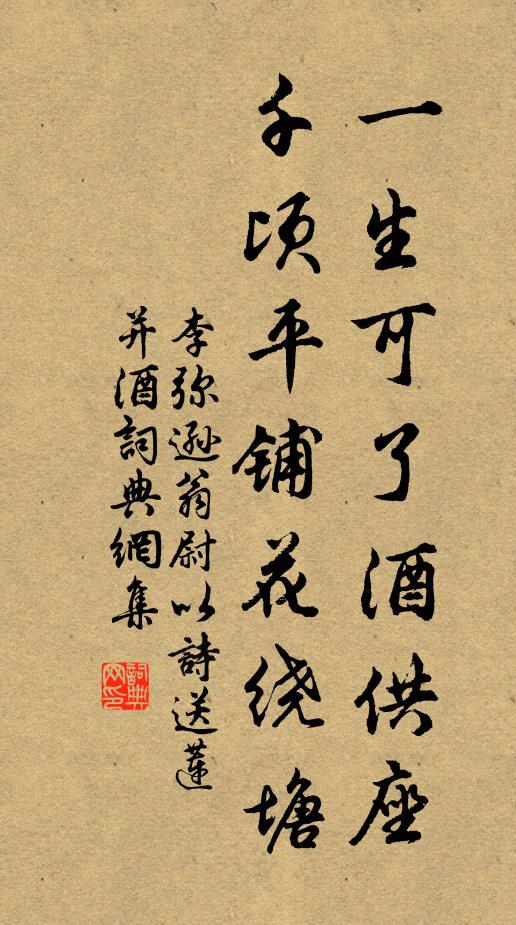 一生可了酒供座
千顷平铺花绕塘
李弥逊翁尉以詩送蓮
并酒詞典網集
詞典网印